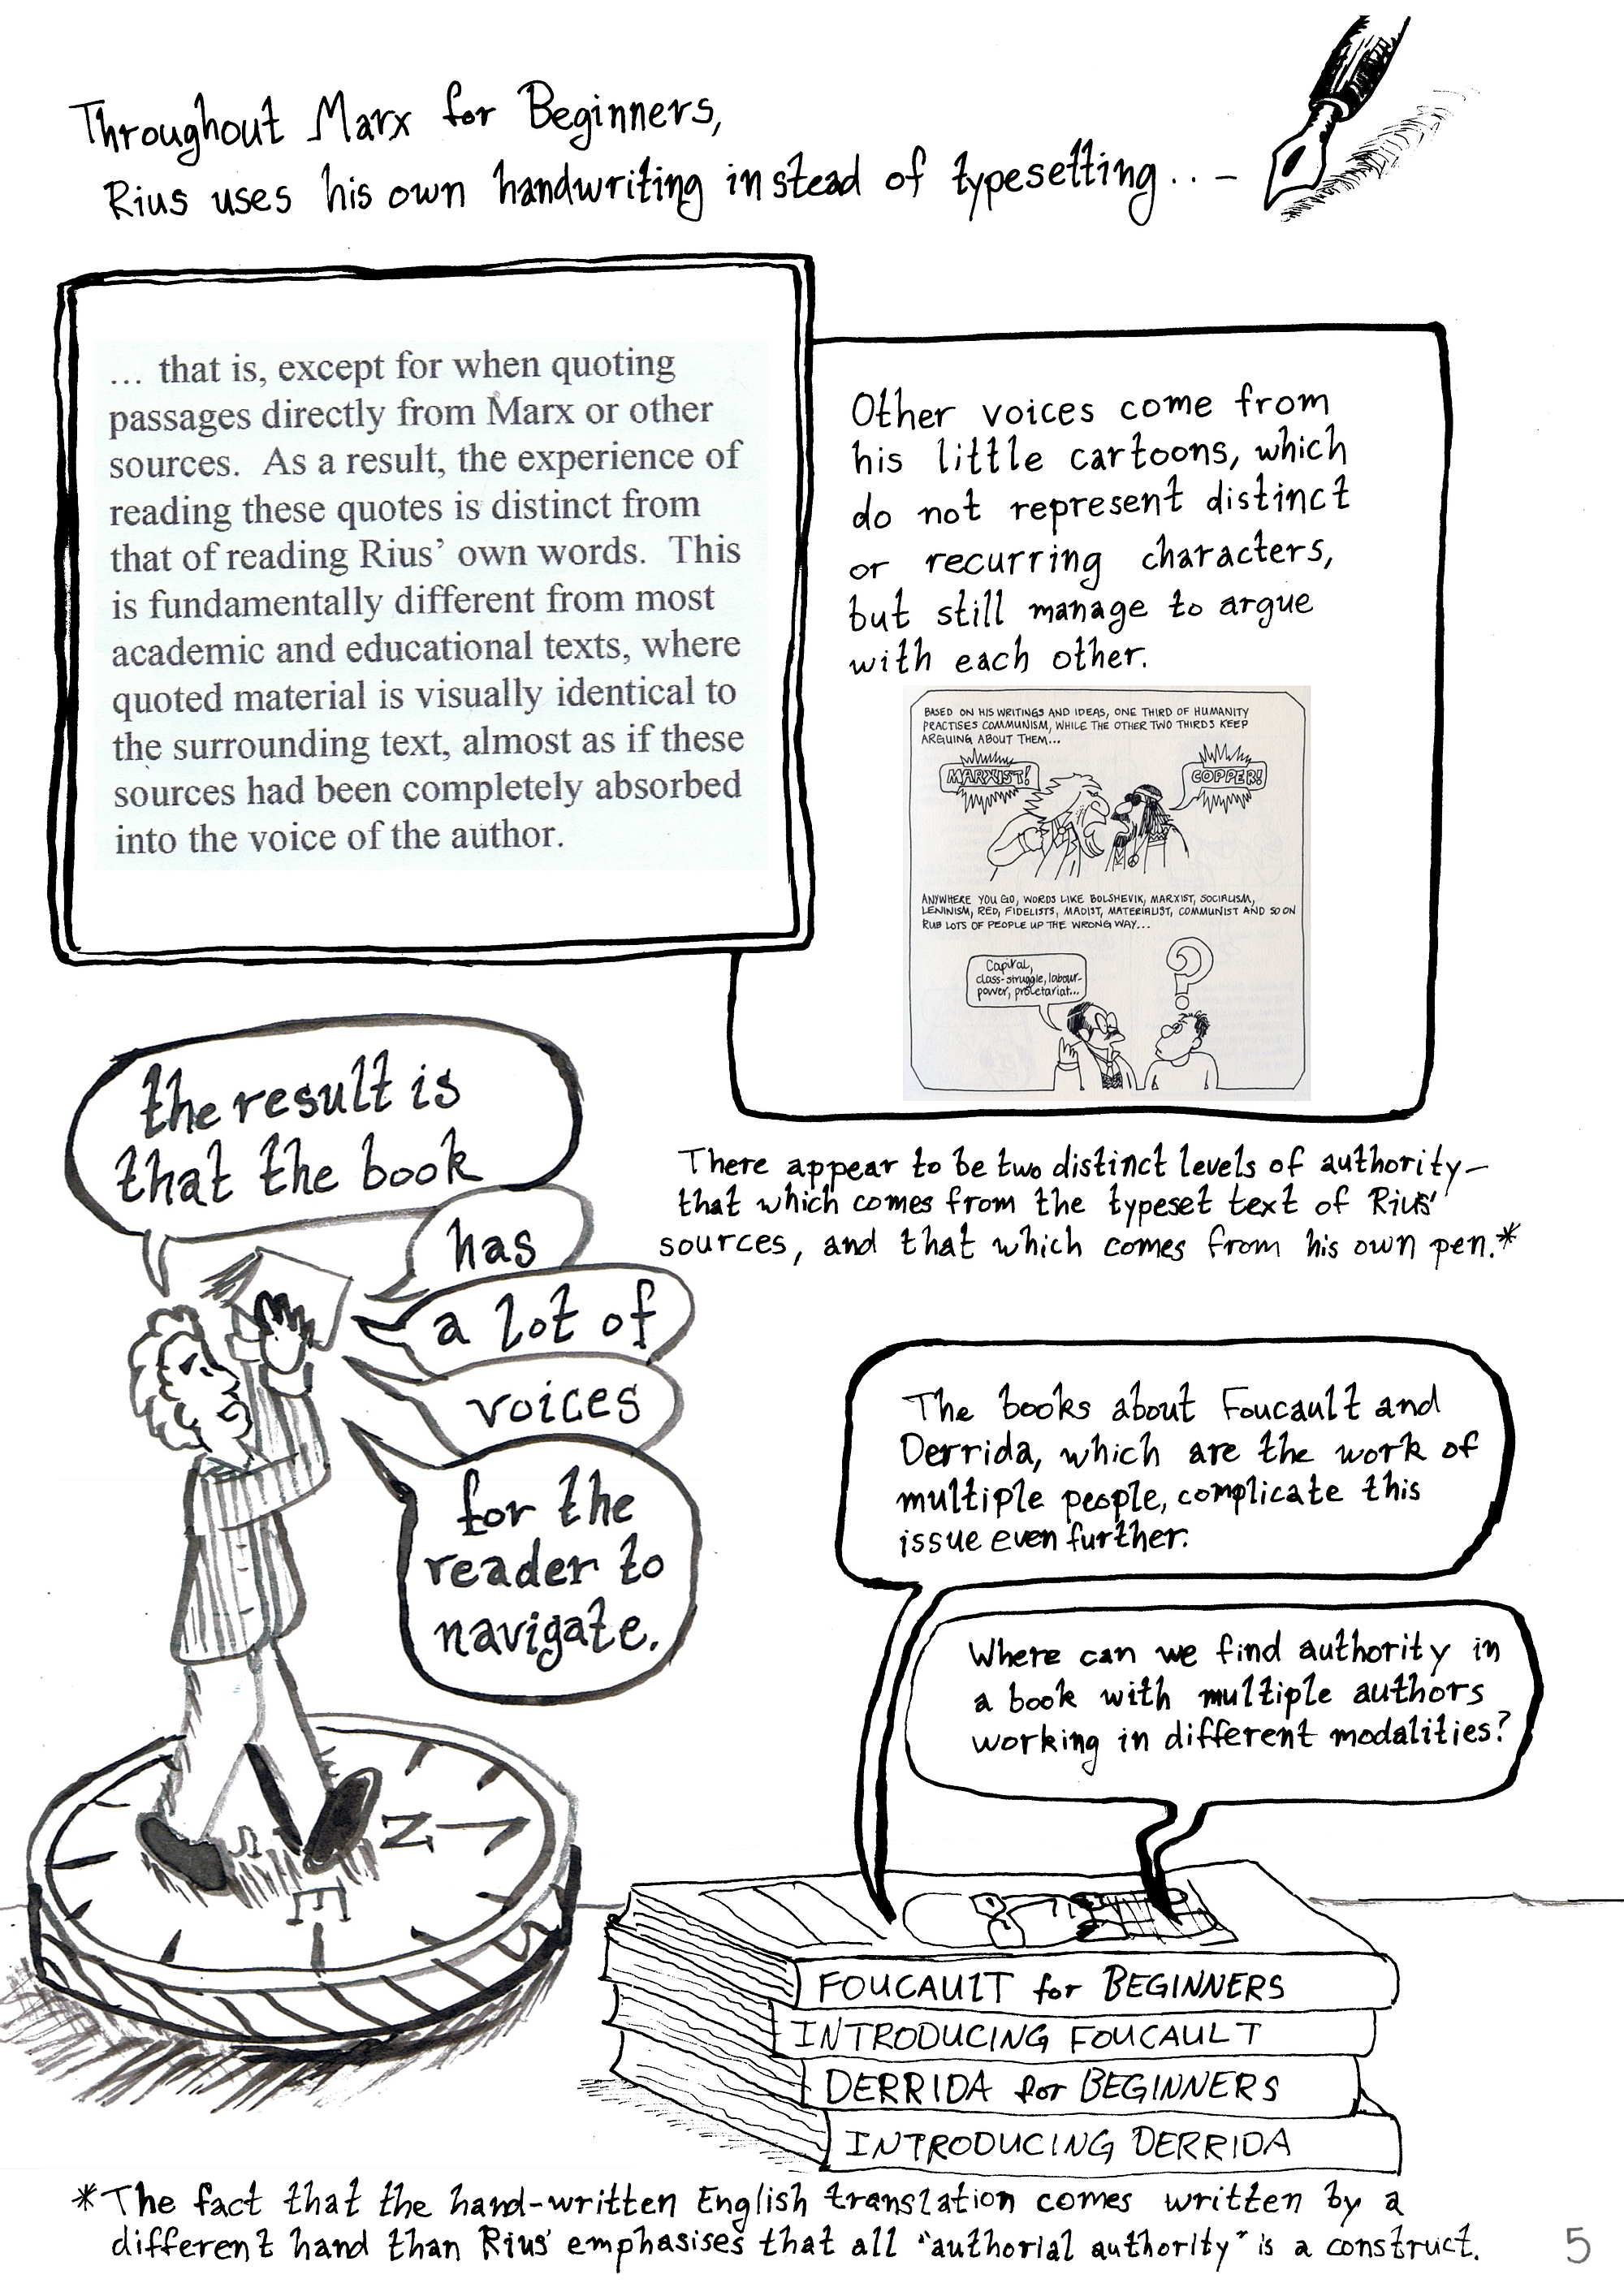 Throughout Marx for Beginners,
Rius uses his own handwriting instead of typesetting...–
... that is, except for when quoting
passages directly from Marx or other
sources. As a result, the experience of
reading these quotes is distinct from
that of reading Rius’ own words. This
is fundamentally different from most
academic and educational texts, where
quoted material is visually identical to
the surrounding text, almost as if these
sources had been completely absorbed
into the voice of the author.
Other voices come from
his little cartoons, which
do not represent distinct
or recurring characters,
but still manage to argue
with each other.
BASED ON HIS WRITINGS AND IDEAS, ONE THIRD OF HUMANITY
PRACTISES COMMUNISM, WHILE THE OTHER TWO THIRDS KEEP
ARGUING ABOUT THEM...
MARXIST!
COPPER!
ANYWHERE YOU GO, WORDS LIKE BOLSHEVIK, MARXIST, SOCIALISM,
LENINISM, RED, FIDELISTS, MAOIST, MATERIALIST, COMMUNIST AND SO ON
RUB LOTS OF PEOPLE UP THE WRONG WAY...
Capital,
class-struggle, labour-
power, proletariat...
?
There appear to be two distinct levels of authority—
that which comes from the typeset text of Rius'
sources, and that which comes from his own pen.*
the result is
that the book
has
a lot of
voices
for the
reader to
navigate.
The books about Foucault and
Derrida, which are the work of
multiple people, complicate this
issue even further.
Where can we find authority in
a book with multiple authors
working in different modalities?
S
N
E
FOUCAULT for BEGINNERS
INTRODUCING FOUCAULT
DERRIDA for BEGINNERS
INTRODUCING DERRIDA
*The fact that the hand-written English translation comes written by a
different hand than Rius' emphasises that all "authorial authority" is a construct.
5